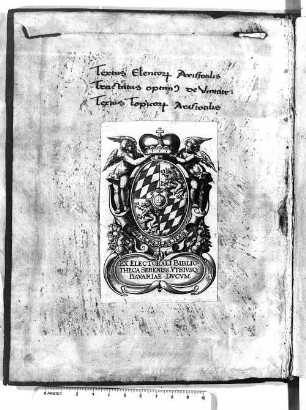 Textus Elencorum Aristotelis
Tractatus optimus de Unitate
Textus Topicorum Aristotelis
EX ELECTORALI BIBLIO
THECA SERENISS. VTRIVSQ
BAVARIAE DVCVM.